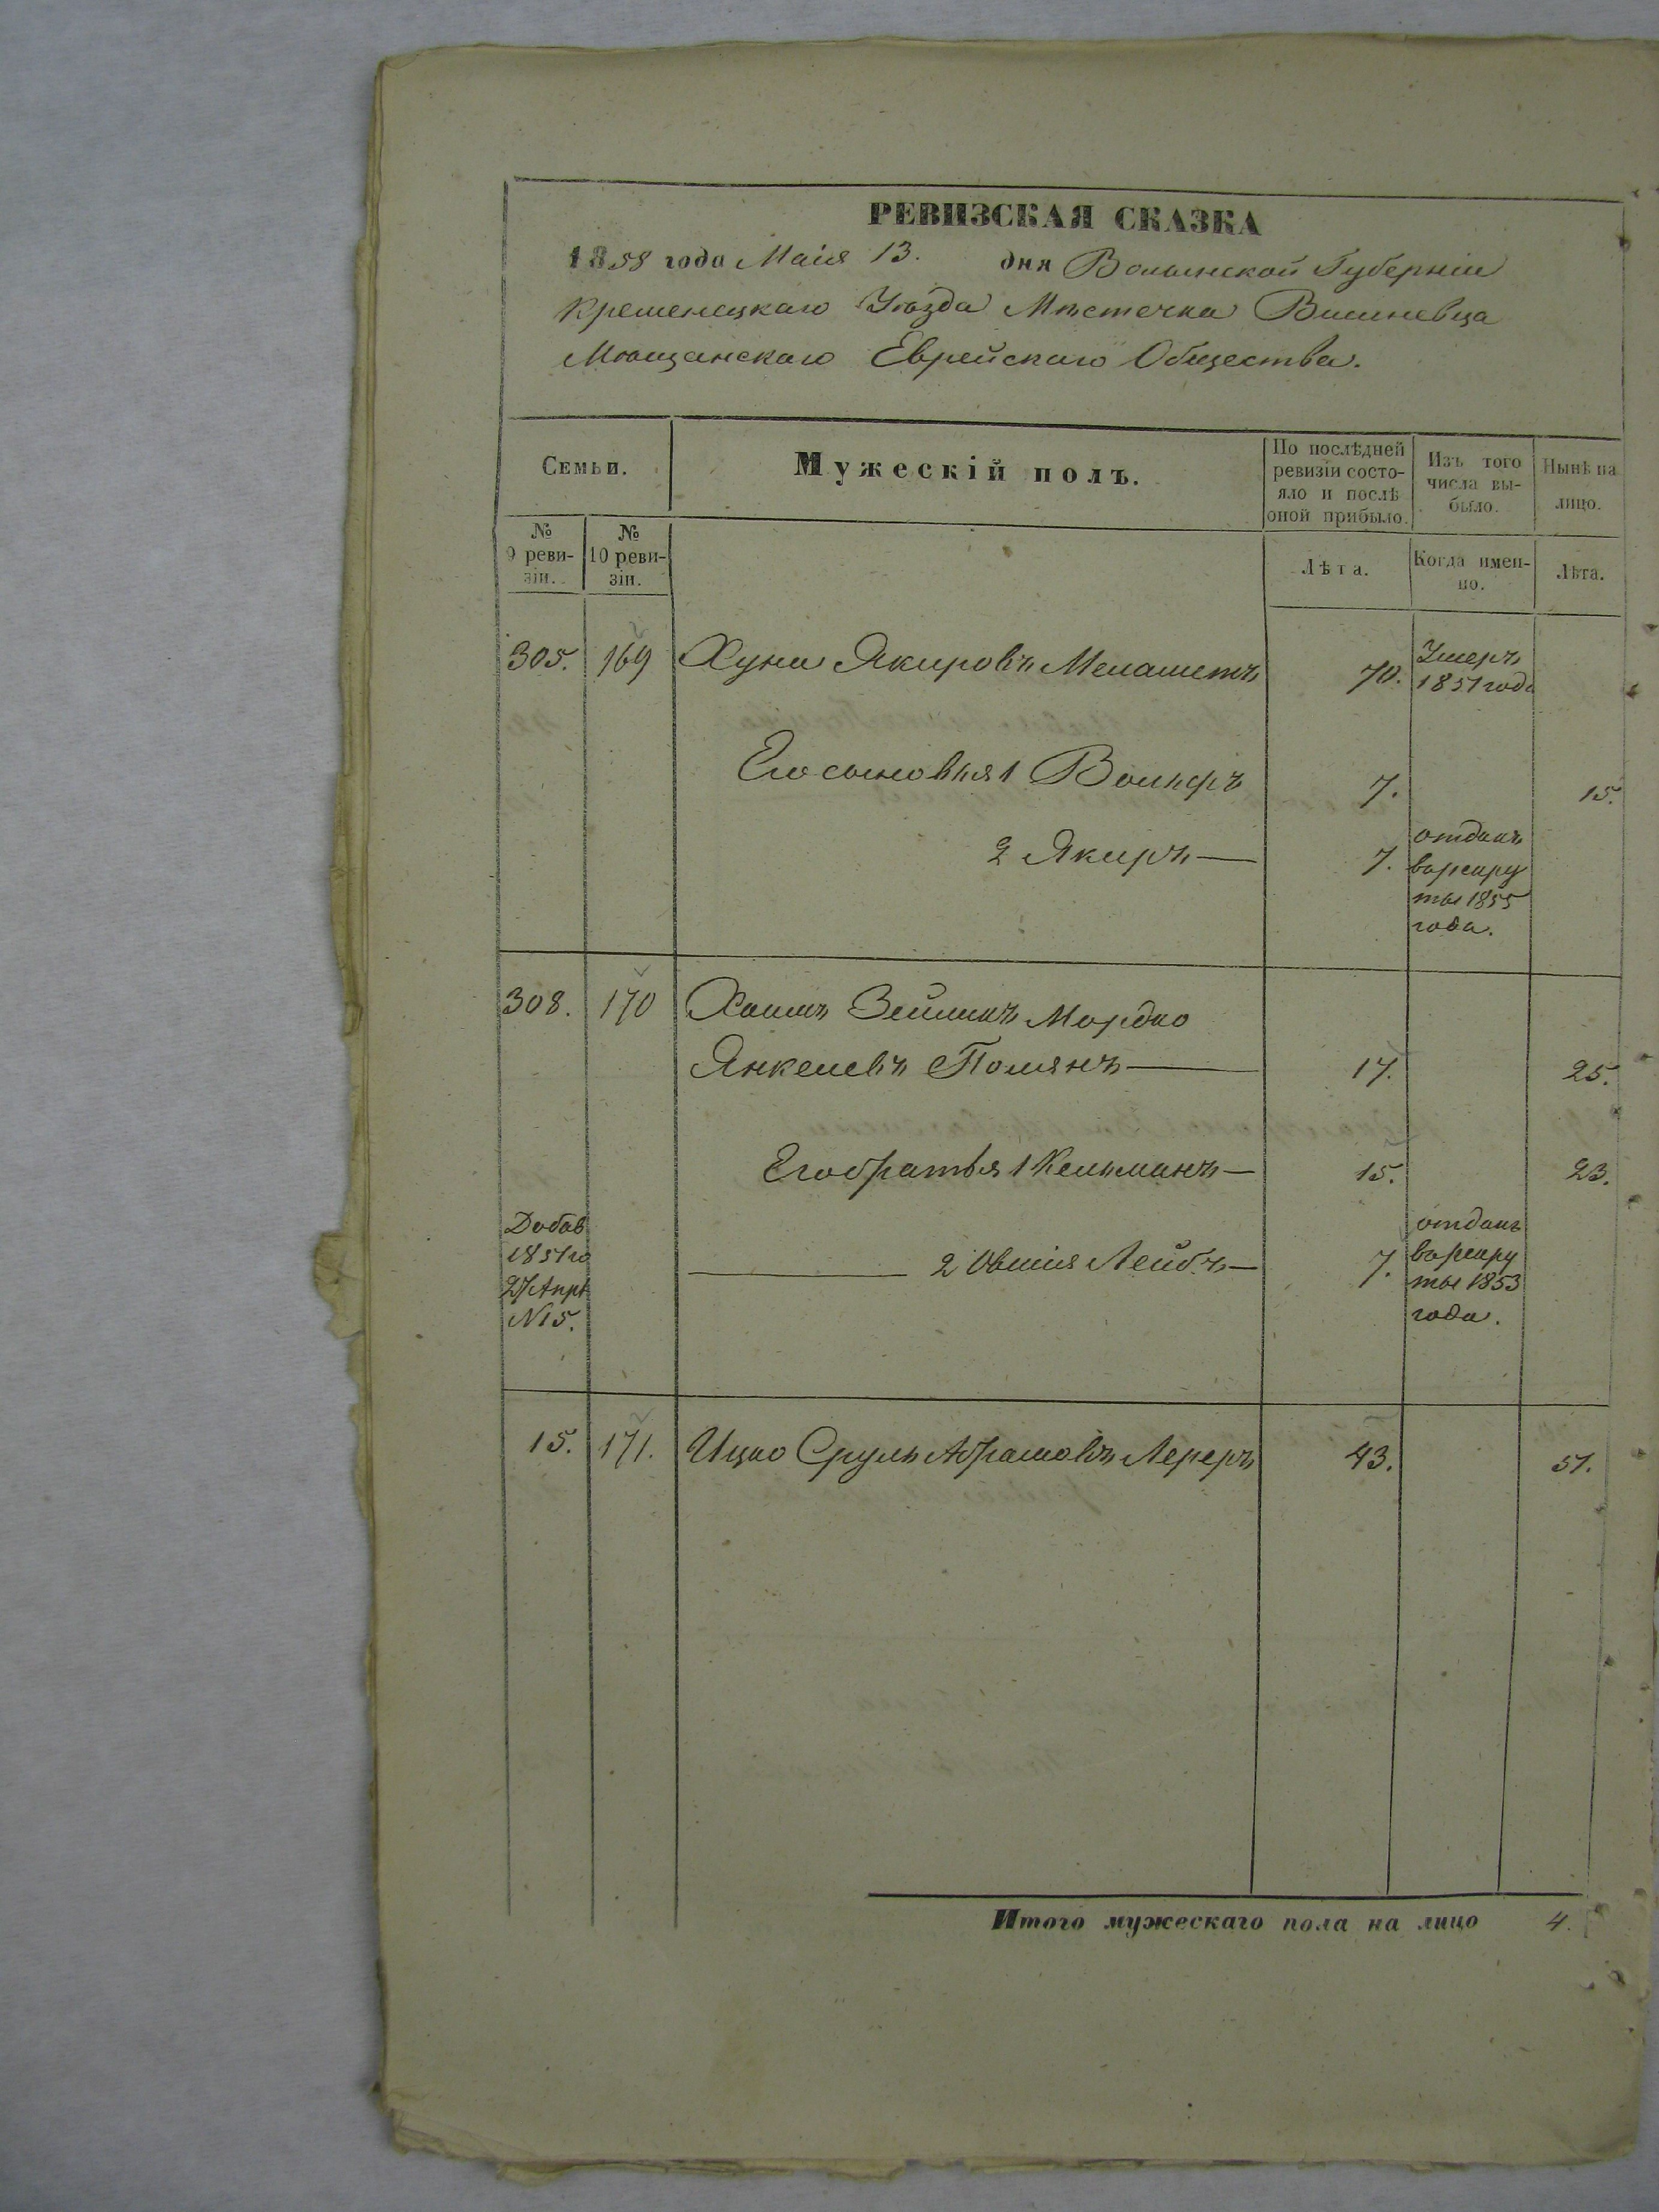 РЕВИЗСКАЯ СКАЗКА
1858 года Маія 13. дня Волынской Губерніи
Кременецкаго Уѣзда Мѣстечка Вишневца
Мѣщанскаго Еврейскаго Общества.
Семьи.
Мужескій полъ.
По послѣдней
ревизіи состо-
яло и послѣ
оной прибыло.
Изъ того
числа вы-
было.
Нынѣ на
лицо.
№
9 реви-
зіи.
№
10 реви-
зіи.
Лѣта.
Когда имен-
но.
Лѣта.
305. 169 Хуна Якировъ 70.
Умеръ
1851 года
Его сыновья 1 Вольфъ 7. 15.
2 Якиръ 7.
отданъ
варекру
ты 1855
года.
308. 170 Хаимъ Зейликъ Мордко
Янкелевъ Полянъ 17. 25.
Его братья 1 Кельманъ 15. 23.
Добав
1851 го
27 Апрѣ
N 15.
2 Овшія Лейбъ 7.
отданъ
варекру
ты 1853
года.
15. 171. Ицко Сруль Абрамовъ Лереръ 43. 51.
Итого мужескаго пола на лицо 4.